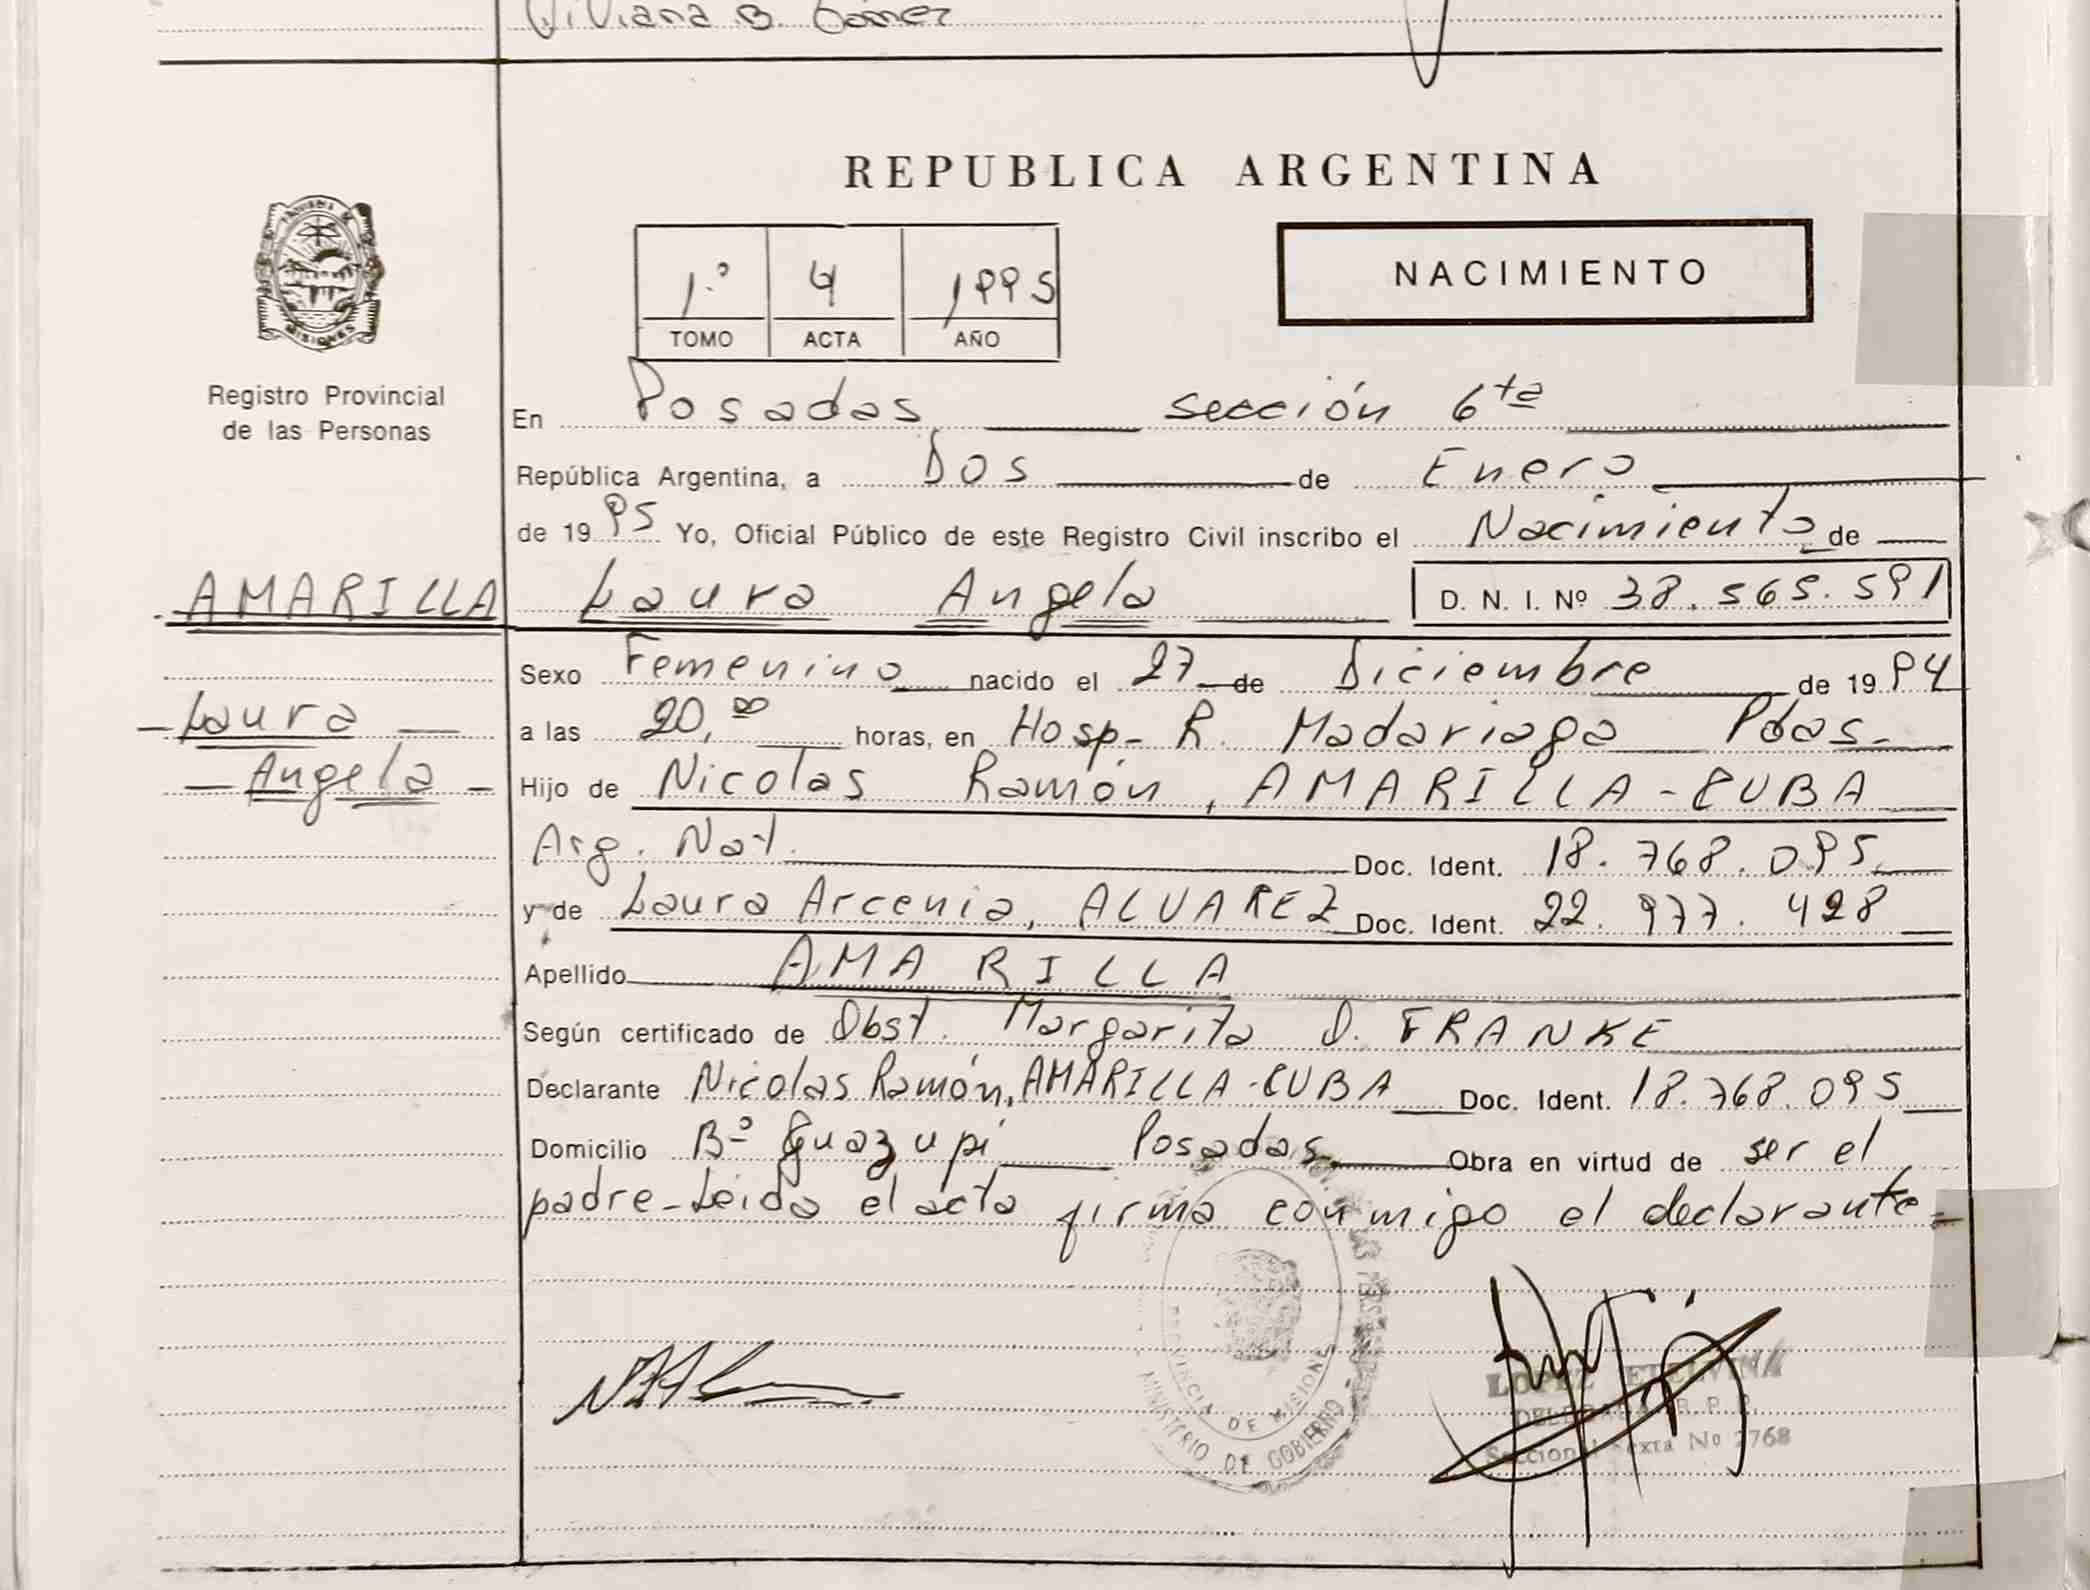 Viviana B. Gómez
REPUBLICA ARGENTINA
NACIMIENTO
1.º 4 1995
TOMO ACTA AÑO
MISIONES
Registro Provincial
de las Personas
En Posadas sección 6ta
República Argentina, a Dos de Enero
de 1995 Yo, Oficial Público de este Registro Civil inscribo el Nacimiento de
AMARILLA Laura Angela D. N. I. Nº 38.565.591
Sexo Femenino nacido el 27 de Diciembre de 1994
Laura
a las 20,00 horas, en Hosp- R. Madariaga Pdas-
Angela
Hijo de Nicolas Ramón, AMARILLA-CUBA
Arg. Nat. Doc. Ident. 18.768.095
y de Laura Arcenia, ALVAREZ Doc. Ident. 22.977.428
Apellido AMARILLA
Según certificado de Obst. Margarita D. FRANKE
Declarante Nicolas Ramón, AMARILLA-CUBA Doc. Ident. 18.768.095
Domicilio Bº Guazupi Posadas Obra en virtud de ser el
padre-Leida el acta firma conmigo el declarante-
PROVINCIA DE MISIONES
MINISTERIO DE GOBIERNO
LOPEZ ETELVINA
DELEGADA R. P. P.
Seccional Sexta Nº 2768